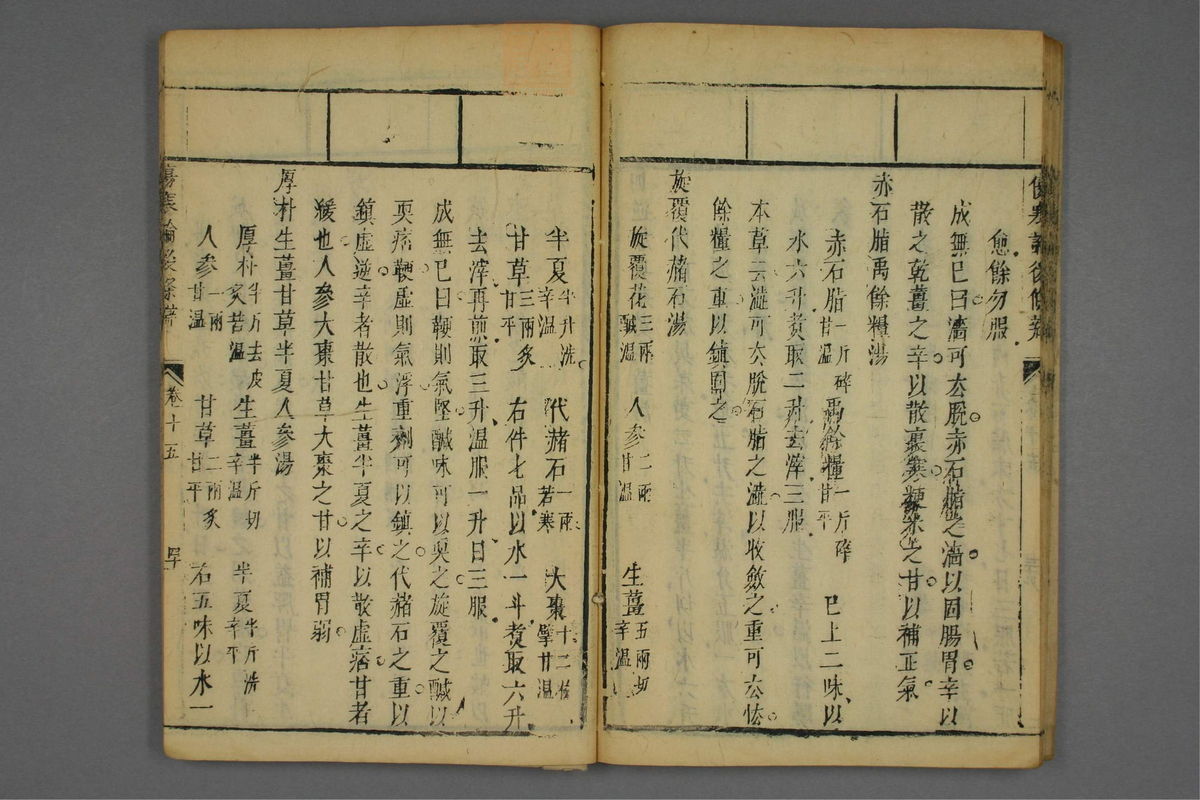 愈餘勿服
成無已曰濇可去脫赤石脂之濇以固腸胃辛以
散之乾薑之辛以散裏寒粳米之甘以補正氣
赤石脂禹餘糧湯
赤石脂一斤碎甘溫 禹餘糧一斤碎甘平 已上二味以
水六升煑取二升去滓三服
本草云澁可去脫石脂之澁以收斂之重可去怯
餘糧之重以鎮固之
旋覆代赭石湯
旋覆花三兩鹹溫 人參二兩甘溫 生薑五兩切辛溫
半夏半升洗辛溫 代赭石一兩苦寒 大棗十二枚擘甘溫
甘草三兩炙甘平 右件七品以水一斗煑取六升
去滓再煎取三升温服一升日三服
成無已曰鞕則氣堅鹹味可以耎之旋覆之鹹以
耎痞鞕虛則氣浮重劑可以鎮之代赭石之重以
鎮虛逆辛者散也生薑半夏之辛以散虛痞甘者
緩也人參大棗甘草大棗之甘以補胃弱
厚朴生薑甘草半夏人參湯
厚朴半斤去皮炙苦溫 生薑半斤切辛溫 半夏半斤洗辛平
人參一兩甘溫 甘草二兩炙甘平 右五味以水一
卷十五